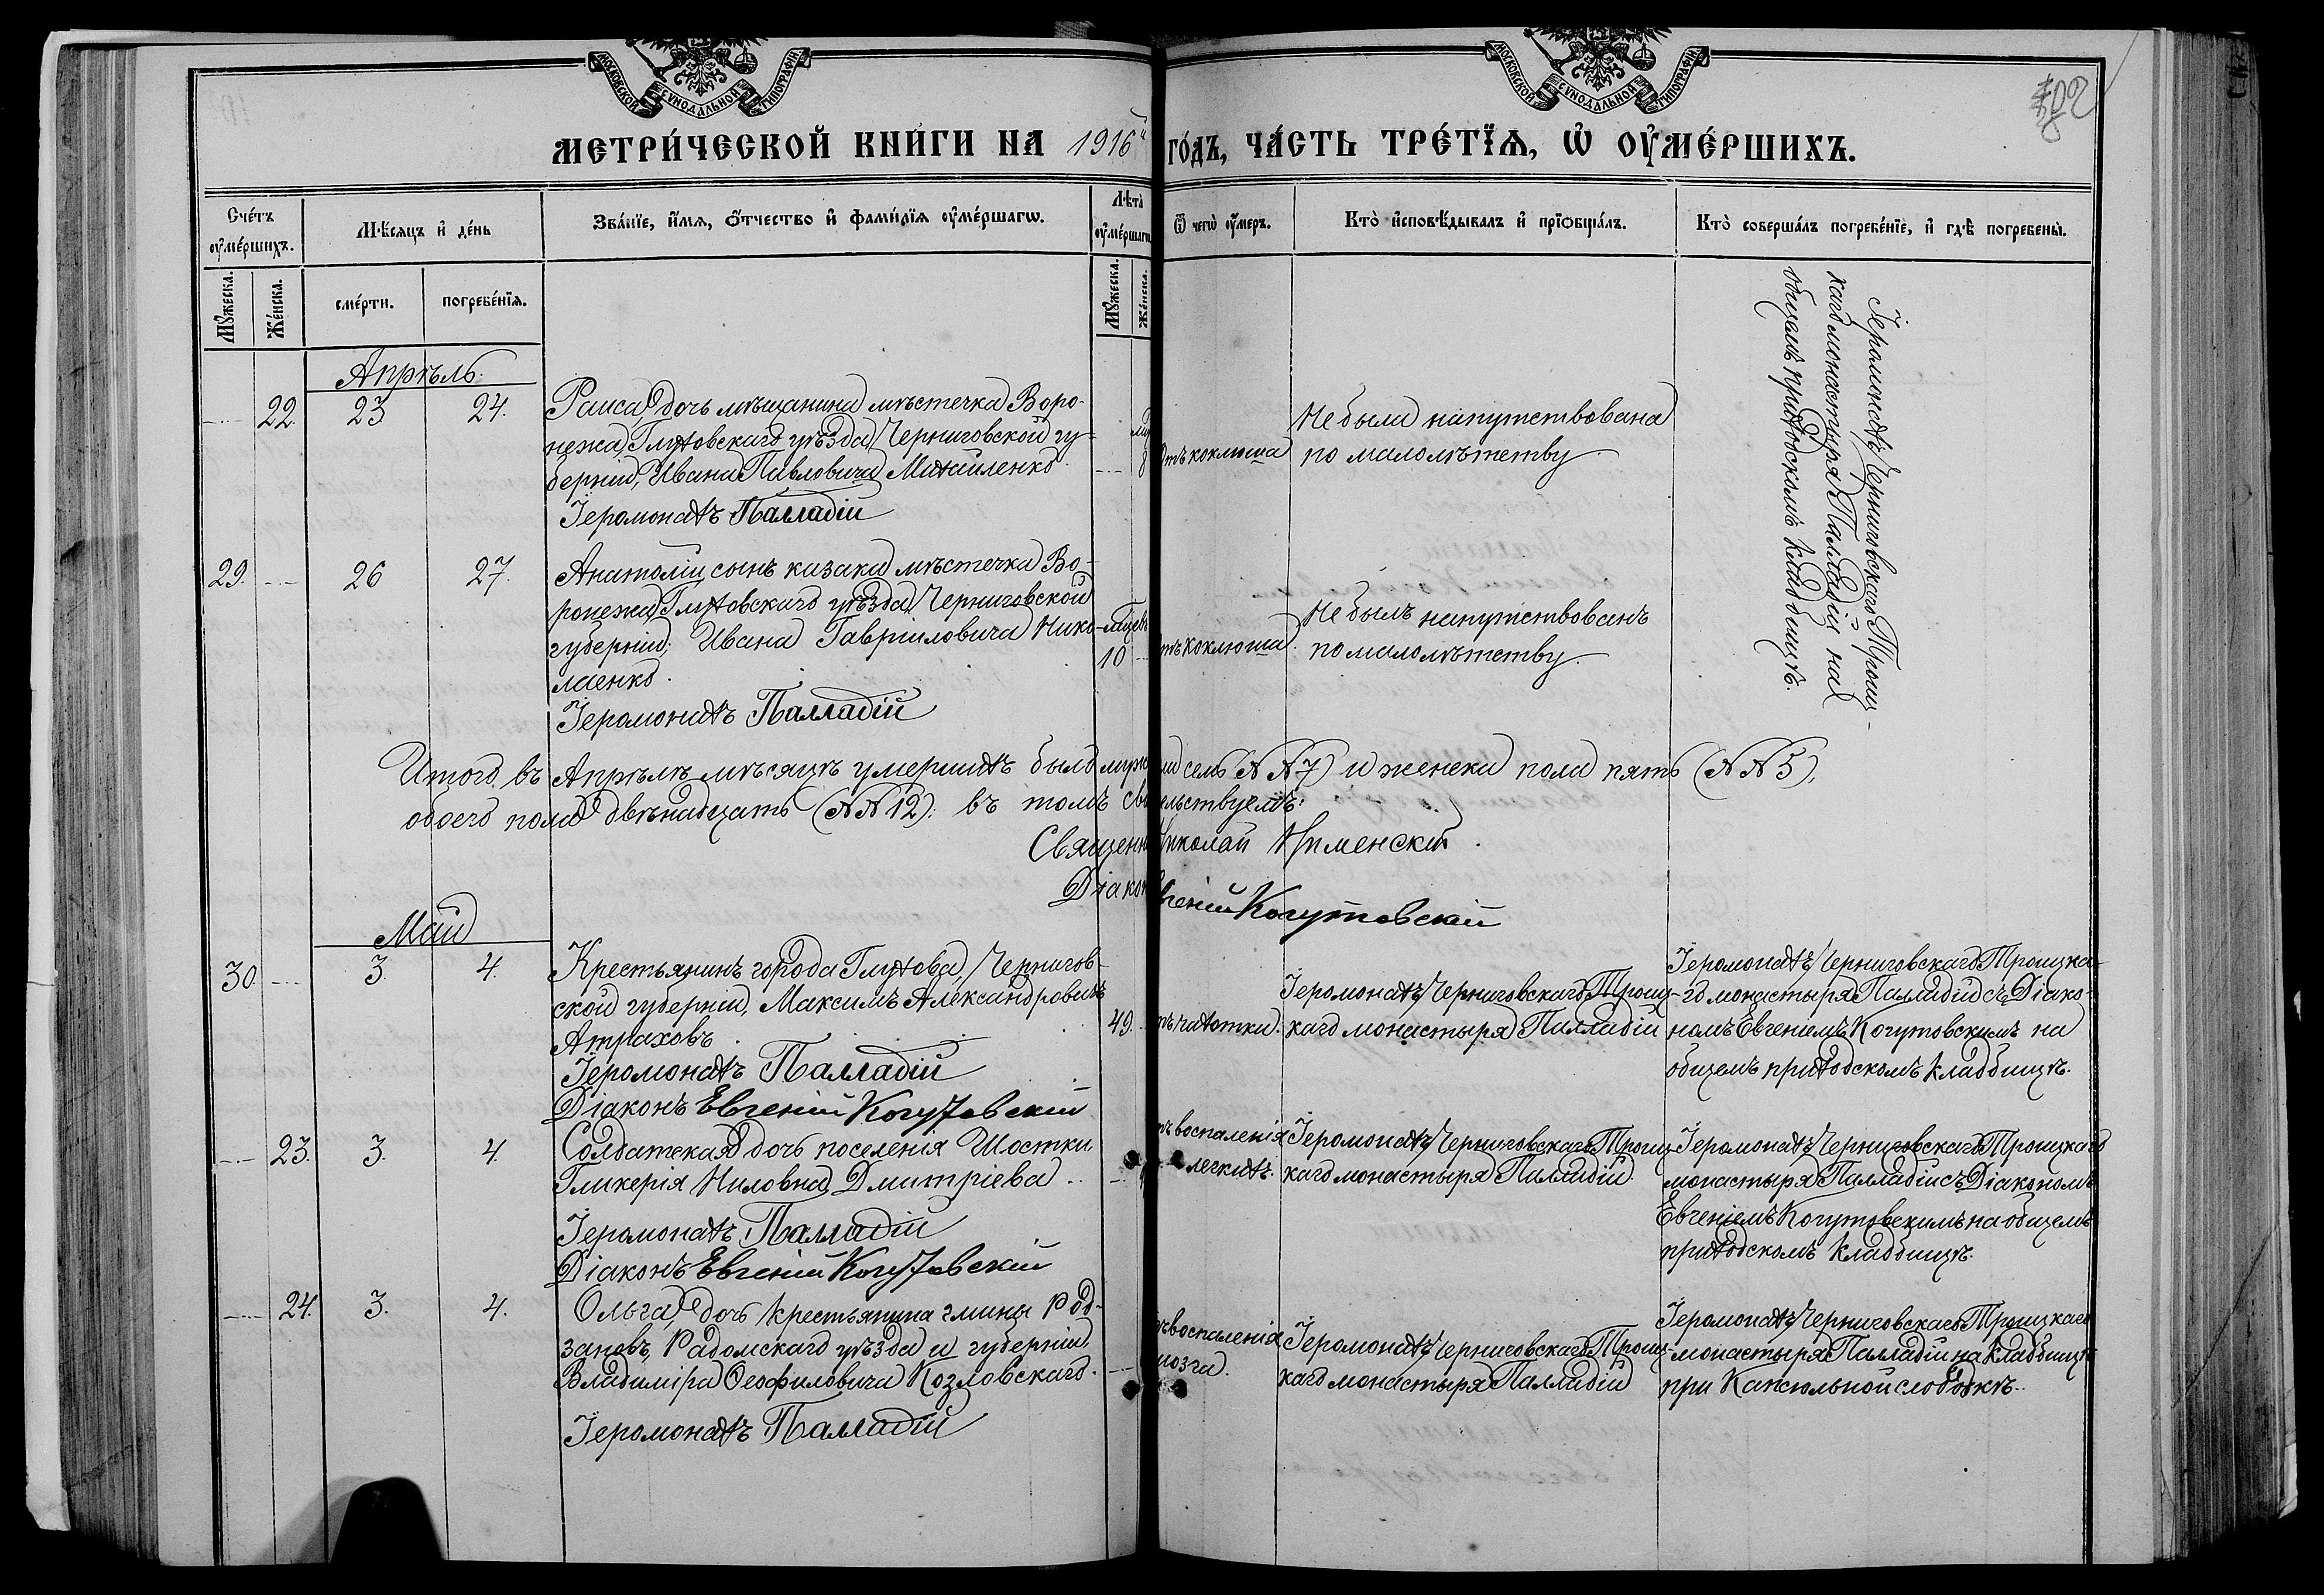 МОСКОВСКОЙ СѴНОДАЛЬНОЙ ТИПОГРАФІИ
МОСКОВСКОЙ СѴНОДАЛЬНОЙ ТИПОГРАФІИ
МЕТРИ́ЧЕСКОЙ КНИ́ГИ НА 1916й ГО́ДЪ, ЧА́СТЬ ТРЕ́ТЇѦ, Ѡ҆ ОУ҆МЕ́РШИХЪ.
Сче́тъ оу҆ме́ршихъ.
Мꙋ́жеска.
Же́нска.
Мѣ́сяцъ и҆ де́нь
сме́рти.
погребе́нїѧ.
Зва́нїе, и҆́мѧ, ѻ҆́тчество и҆ фами́лїѧ оу҆ме́ршагѡ.
Лѣ́та оу҆ме́ршагѡ
Мꙋ́жеска.
Же́нска.
Ѿ чегѡ̀ оу҆́меръ.
Кто̀ и҆сповѣ́дывалъ и҆ прїѡбща́лъ.
Кто̀ соверша́лъ погребе́нїе, и҆ гдѣ̀ погребены̀.
Апрѣль.
22. 23 24.
Раиса, дочь мѣщанина мѣстечка Воро-
нежа, Глуховскаго уѣзда, Черниговской гу-
берніи, Ивана Павловича Михайленко.
Іеромонахъ Палладій
8
отъ коклюша
Не была напутствована
по малолѣтству.
Іеромонахъ Черниговскаго Троиц-
каго монастыря Палладій на
общемъ приходскомъ кладбищѣ.
29. 26 27.
Анатолій, сынъ казака мѣстечка Во-
ронежа, Глуховскаго уѣзда, Черниговской
губерніи, Ивана Гавріиловича Нико-
лаенко.
Іеромонахъ Палладій
10
отъ коклюша.
Не былъ напутствованъ
по малолѣтству.
Итого въ Апрѣлѣ мѣсяцѣ умершихъ было семь (NN 7) и женска пола пять (NN 5),
обоего пола двѣнадцать (NN 12): въ томъ свидѣтельствуемъ:
Священн Николай
Діакон Евгеній Когутовскій
Май
30. 3. 4.
Крестьянинъ города Глухова, Чернигов-
ской губерніи, Максимъ Александровичъ
Атраховъ.
Іеромонахъ Палладій
Діаконъ Евгеній Когутовскій
49.
отъ чахотки.
Іеромонахъ Черниговскаго Троиц-
каго монастыря Палладій
Іеромонахъ Черниговскаго Троицка-
го монастыря Палладій съ Діако-
номъ Евгеніемъ Когутовскимъ на
общемъ приходскомъ кладбищѣ.
23. 3. 4.
Солдатская дочь поселенія Шостки
Гликерія Ниловна Дмитріева.
Іеромонахъ Палладій
Діаконъ Евгеній Когутовскій
отъ воспаленія
легкихъ.
Іеромонахъ Черниговскаго Троиц-
каго монастыря Палладій.
Іеромонахъ Черниговскаго Троицкаго
монастыря Палладій съ Діакономъ
Евгеніемъ Когутовскимъ на общемъ
приходскомъ кладбищѣ.
24. 3. 4.
Ольга, дочь крестьянина гмины Род-
зановъ, Радомскаго уѣзда и губерніи,
Владиміра Ѳеофиловича Козловскаго.
Іеромонахъ Палладій
отъ воспаленія
мозга.
Іеромонахъ Черниговскаго Троиц-
каго монастыря Палладій
Іеромонахъ Черниговскаго Троицкаго
монастыря Палладій на кладбищѣ
при Капсюльной слободкѣ.